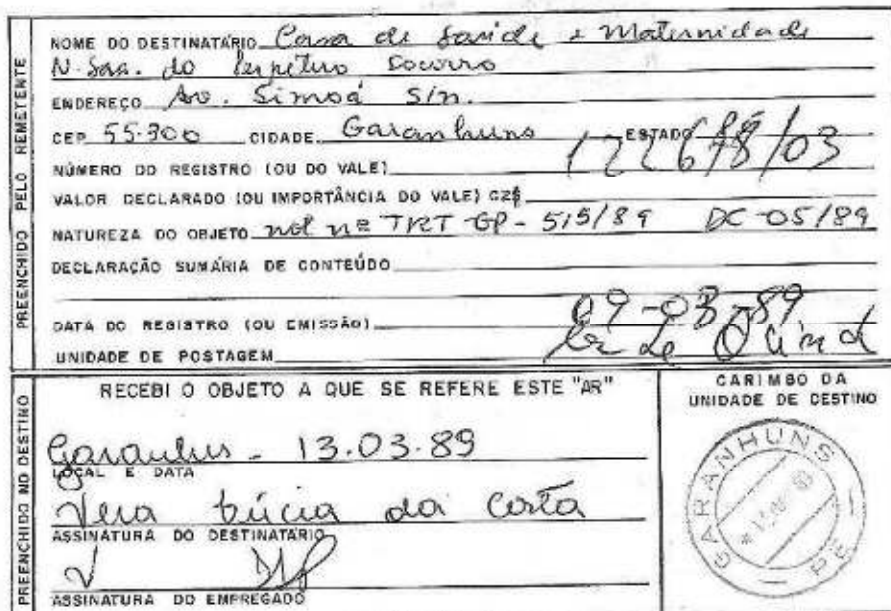 PREENCHIDO PELO REMETENTE
NOME DO DESTINATÁRIO Casa de Saúde e Maternidade
N. Sra. do Perpétuo Socorro
ENDEREÇO Av. Simoá S/n.
CEP 55.300 CIDADE Garanhuns ESTADO PE
122678/03
NÚMERO DO REGISTRO (OU DO VALE)
VALOR DECLARADO (OU IMPORTÂNCIA DO VALE) CZ$
NATUREZA DO OBJETO not nº TRT-GP-515/89 DC-05/89
DECLARAÇÃO SUMÁRIA DE CONTEÚDO
DATA DO REGISTRO (OU EMISSÃO) 09-03-89
UNIDADE DE POSTAGEM
PREENCHIDO NO DESTINO
RECEBI O OBJETO A QUE SE REFERE ESTE "AR"
Garanhus - 13.03.89
LOCAL E DATA
Vera Lúcia da Costa
ASSINATURA DO DESTINATÁRIO
ASSINATURA DO EMPREGADO
CARIMBO DA
UNIDADE DE DESTINO
GARANHUNS
PE